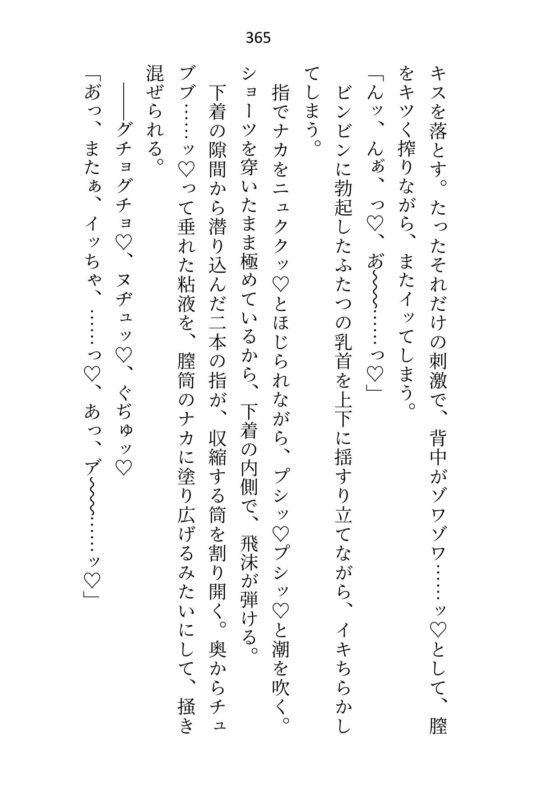 365
キスを落とす。たったそれだけの刺激で、背中がゾワゾワ……ッ♡として、膣
をキツく搾りながら、またイッてしまう。
「んッ、んぁ゛、っ♡、あ゛〜〜〜……っ♡」
ビンビンに勃起したふたつの乳首を上下に揺すり立てながら、イキちらかし
てしまう。
指でナカをニュククッ♡とほじられながら、プシッ♡プシッ♡と潮を吹く。
ショーツを穿いたまま極めているから、下着の内側で、飛沫が弾ける。
下着の隙間から潜り込んだ二本の指が、収縮する筒を割り開く。奥からチュ
ブブ……ッ♡って垂れた粘液を、膣筒のナカに塗り広げるみたいにして、掻き
混ぜられる。
――グチョグチョ♡、ヌヂュッ♡、ぐぢゅッ♡
「あ゛っ、またぁ、イッちゃ、……っ♡、あっ、ア゛〜〜〜……ッ♡」